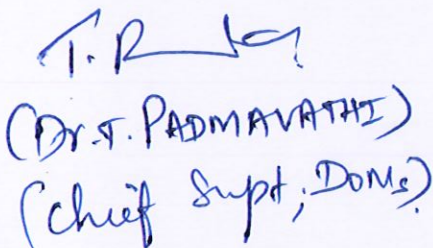 (Dr.T. PADMAVATHI)
(Chief Supt; DOMs)